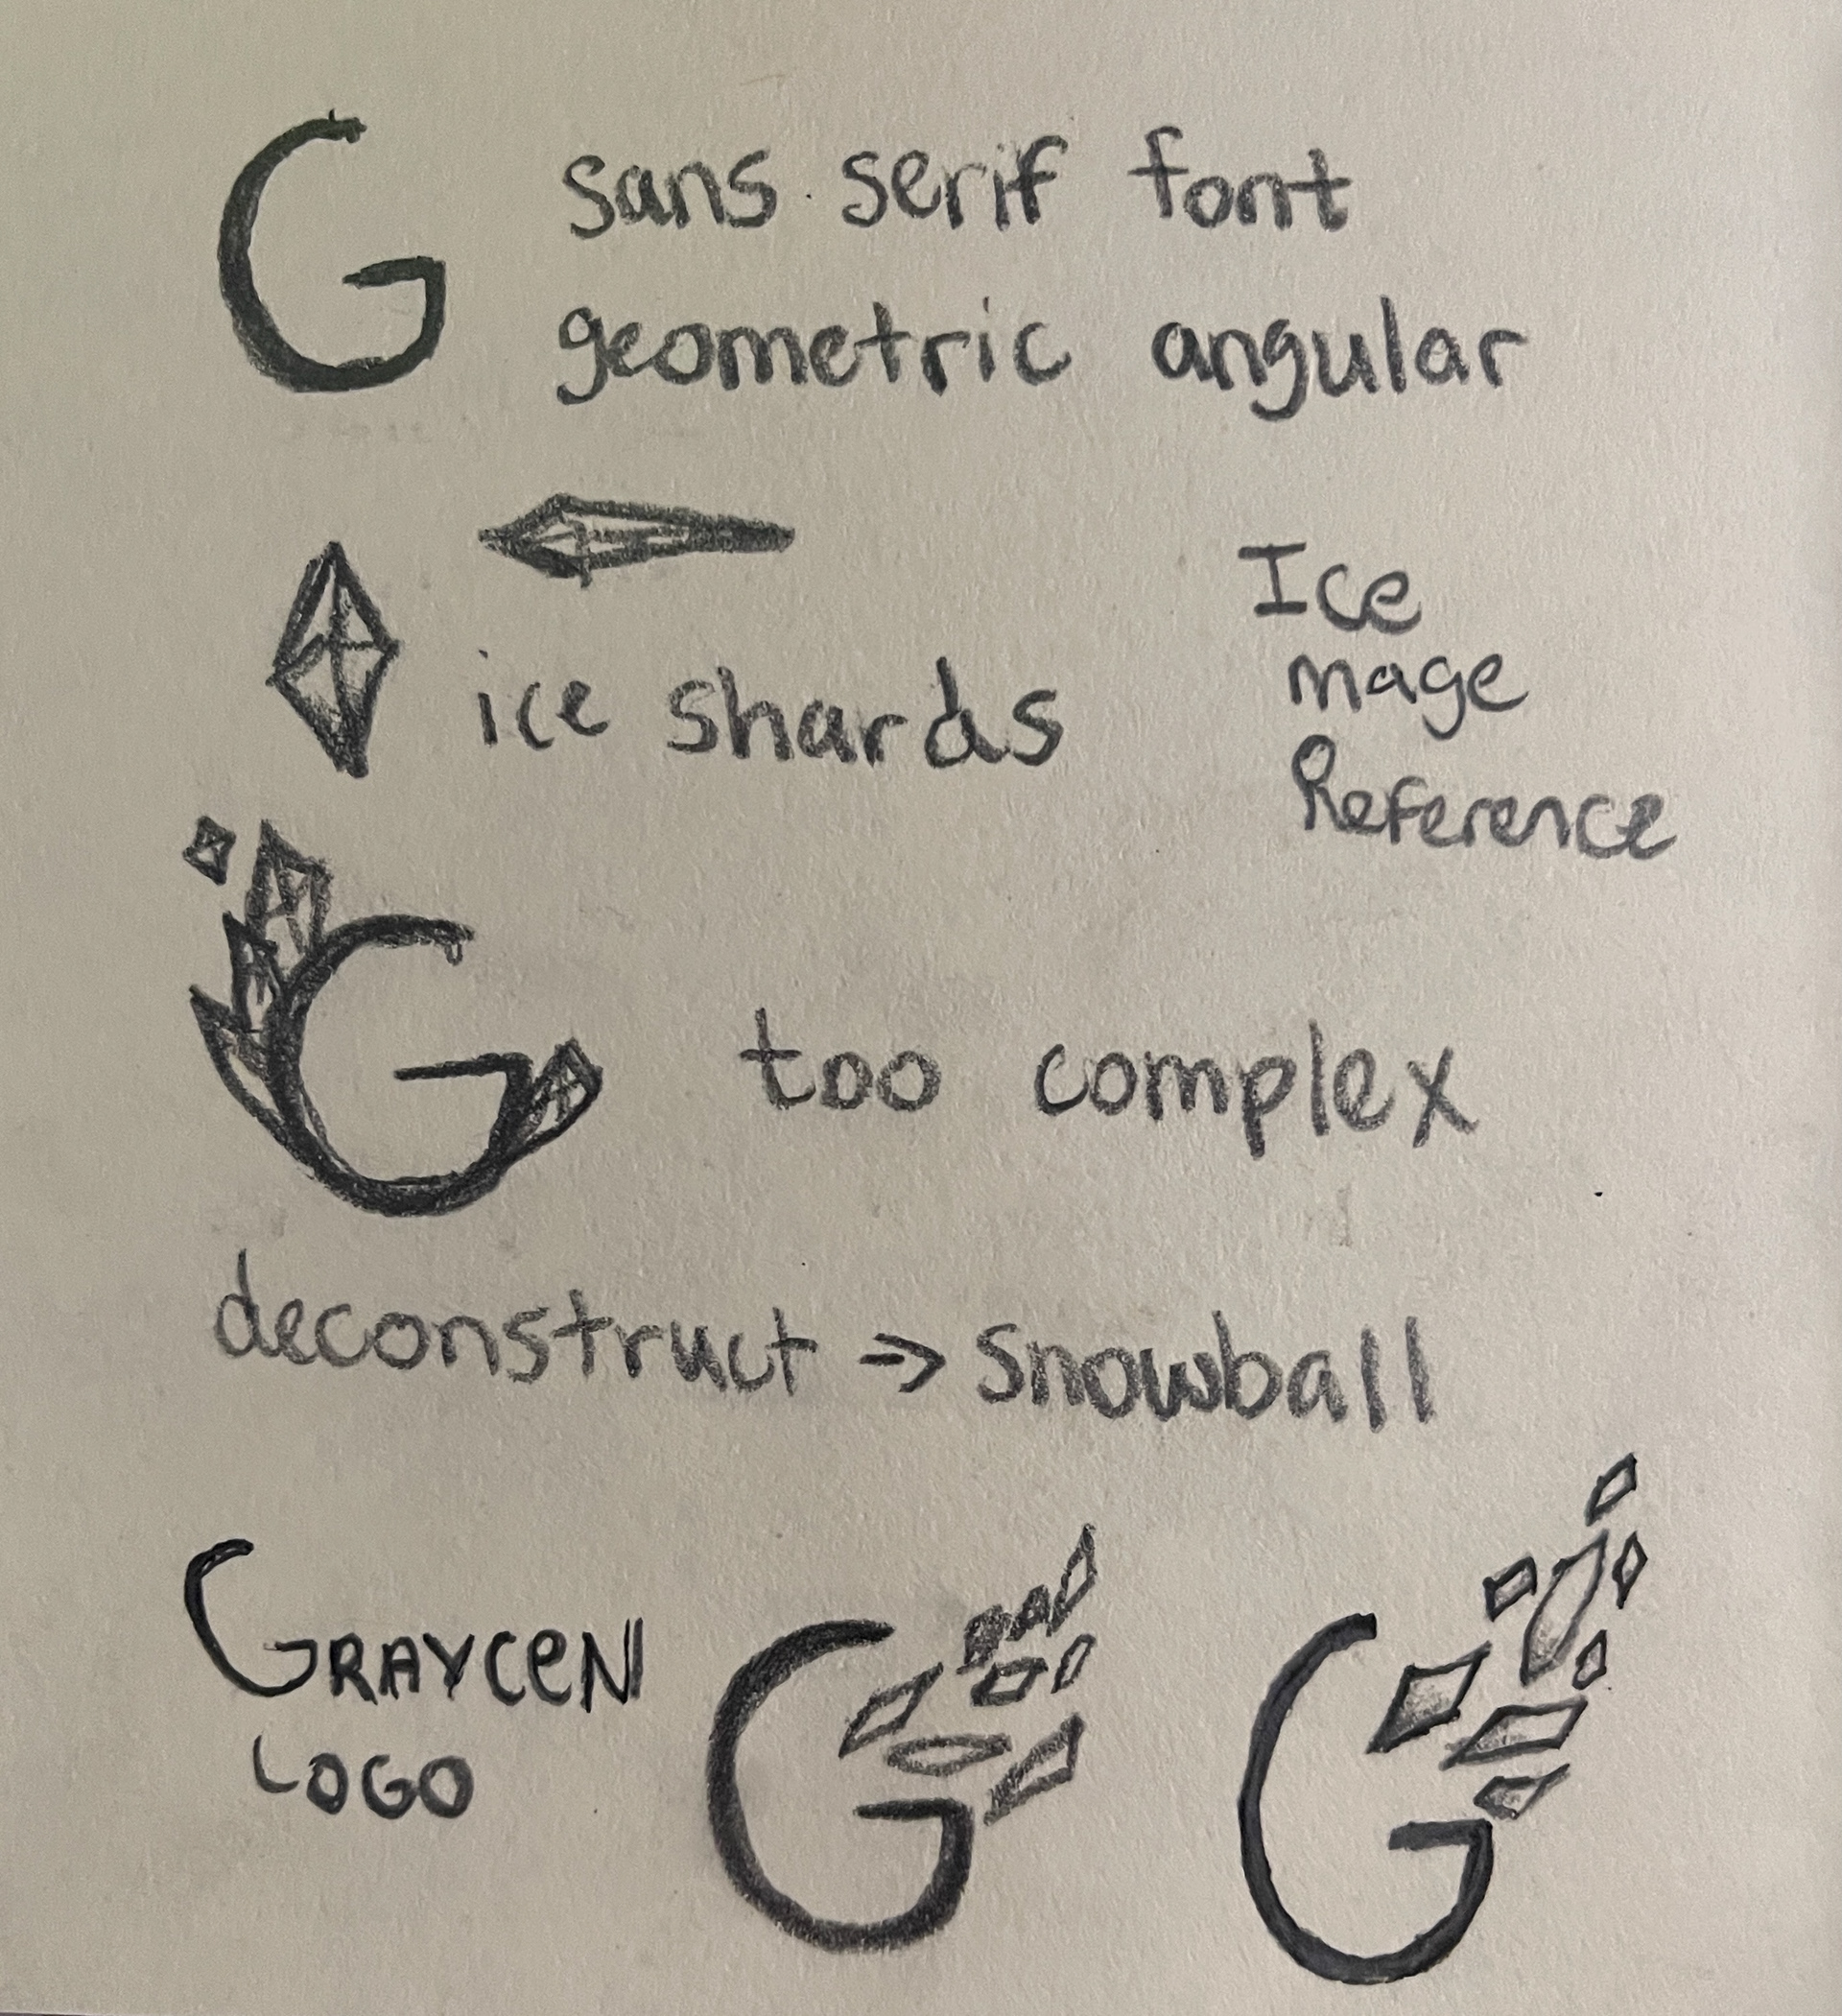 G sans serif font
geometric angular
Ice
mage
Reference
ice shards
G too complex
deconstruct → snowball
GRAYCEN
LOGO
G
G